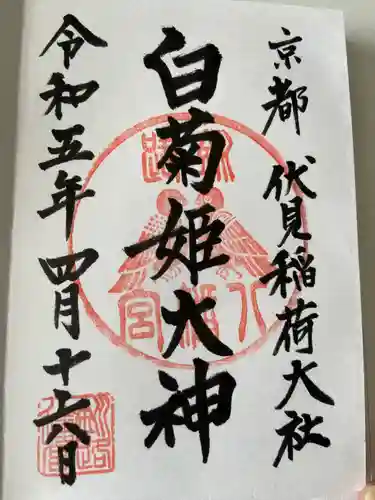 京都 伏見稲荷大社
白菊姫大神
令和五年 四月 十六日
八幡宮